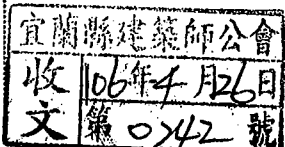 宜蘭縣建築師公會
收文 106年4月26日
第 0242 號